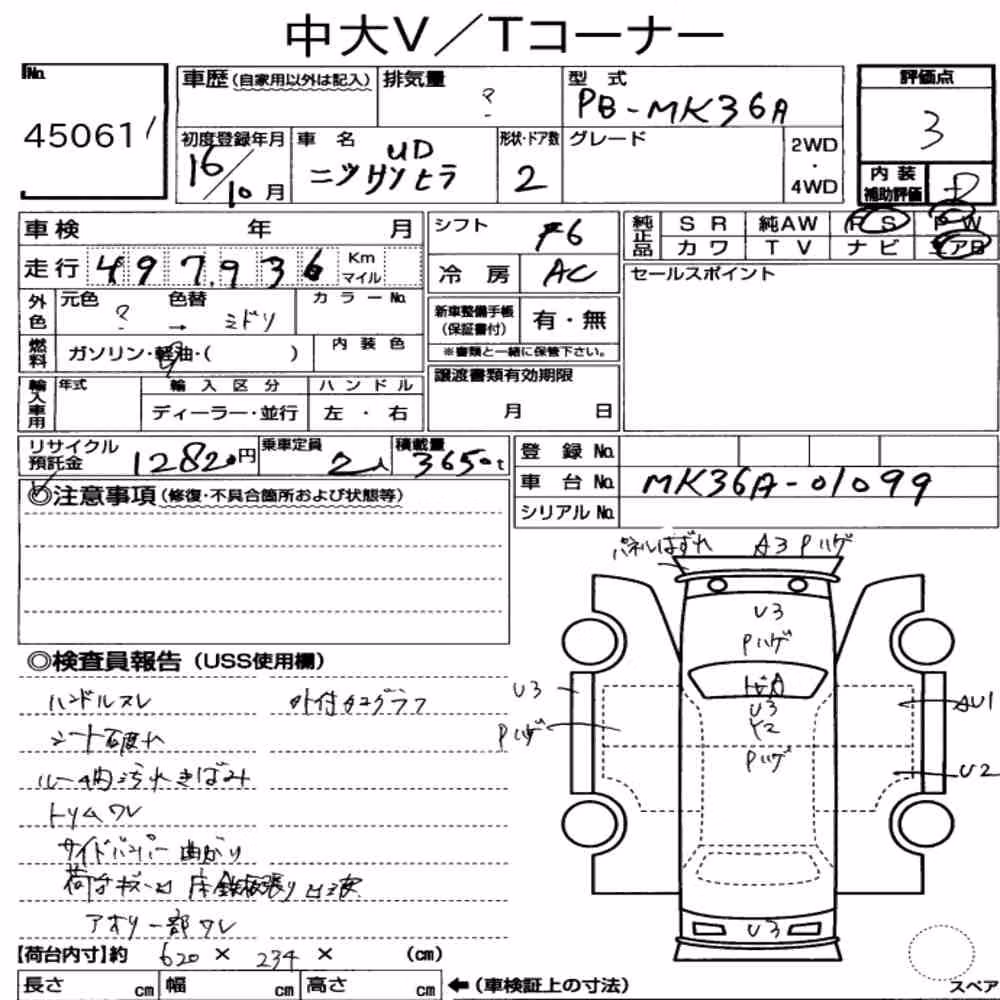 中大V/Tコーナー
No.
45061
車歴(自家用以外は記入)
排気量
?
型式
PB-MK36A
評価点
3
初度登録年月
16/10月
車名
UD
ニッサンヒラ
形状・ドア数
2
グレード
2WD
・
4WD
内装
補助評価
D
車検 年 月
シフト
F6
純正品
SR 純AW PS PW
カワ TV ナビ エアB
走行 497,936 Km マイル
冷房
AC
セールスポイント
外色
元色 色替
? → ミドリ
カラーNo.
新車整備手帳
(保証書付)
有・無
※書類と一緒に保管下さい。
燃料
ガソリン・軽油・( )
内装色
譲渡書類有効期限
月 日
輸入車用
年式
輸入区分
ディーラー・並行
ハンドル
左・右
リサイクル
預託金
12820円
乗車定員
2人
積載量
3650t
登録No.
車台No.
MK36A-01099
シリアルNo.
◎注意事項(修復・不具合箇所および状態等)
パネルはずれ A3 Pハゲ
U3
Pハゲ
トビA
U3
Y2
Pハゲ
U3
Pハゲ
AU1
U2
U3
◎検査員報告(USS使用欄)
ハンドルスレ
外付タコグラフ
シート破れ
ルーム内汚れきばみ
トリムワレ
サイドバンパー曲がり
床鉄板張り凹
アオリ一部ワレ
【荷台内寸】約 620 × 234 × (cm)
長さ cm 幅 cm 高さ cm
←(車検証上の寸法)
スペア